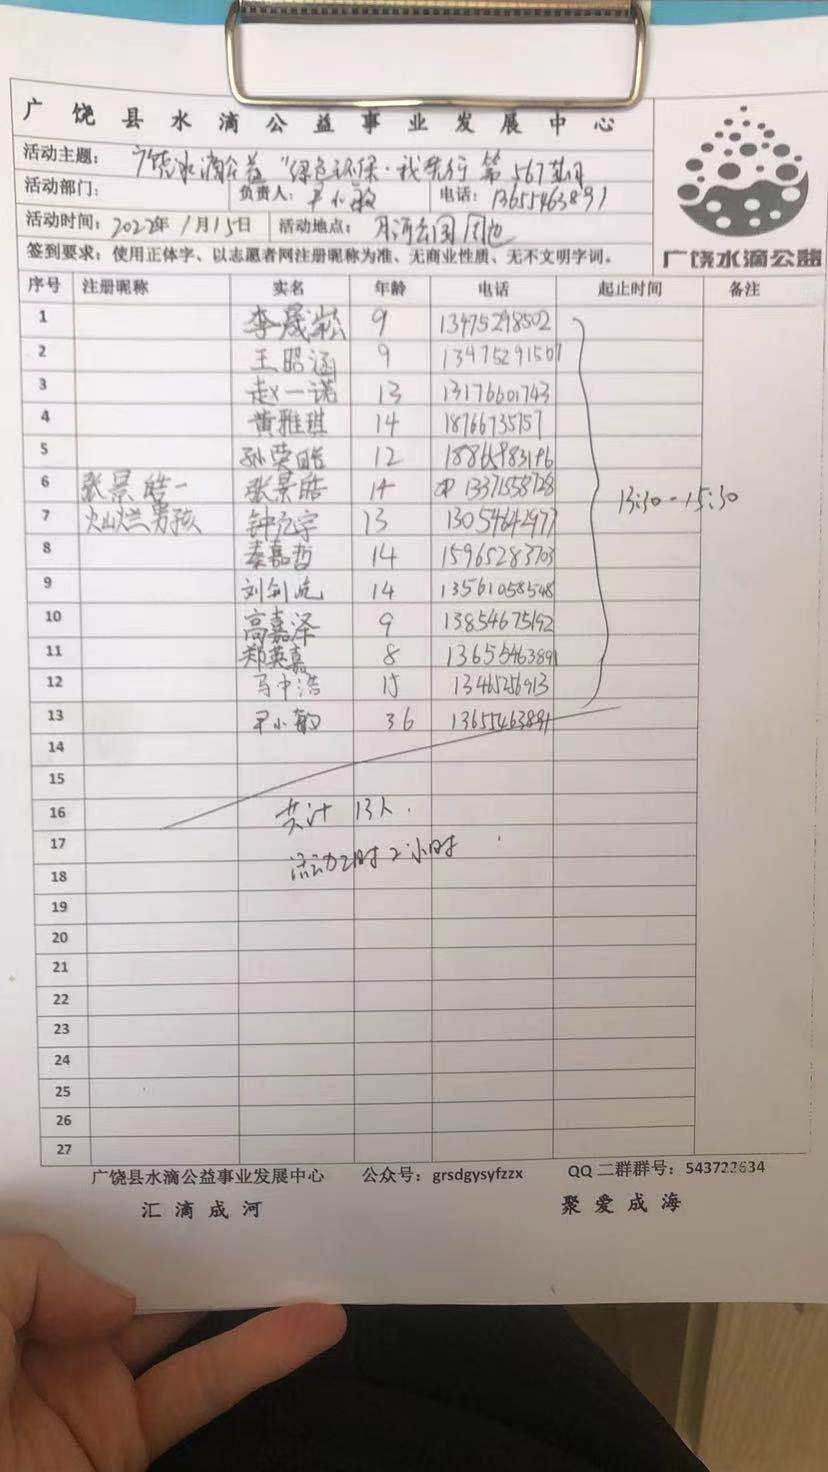 广饶县水滴公益事业发展中心
活动主题： 广饶水滴公益"绿色环保·我先行 第567期
活动部门： 负责人：尹小敏 电话：13655463891
活动时间：2022年1月15日 活动地点：月河公园周边
签到要求：使用正体字、以志愿者网注册昵称为准、无商业性质、无不文明字词。
广饶水滴公益
序号 注册昵称 实名 年龄 电话 起止时间 备注
1 李晟崧 9 13475298502
2 王昭涵 9 13475291507
3 赵一诺 13 13176601743
4 黄雅琪 14 18766735757
5 孙荣皓 12 18865983196
6 张景皓一 张景皓 14 13371558728
13:30-15:30
7 灿烂男孩 13 13054642977
8 秦嘉哲 14 15965283703
9 14 13561058548
10 高嘉泽 9 13854675192
11 郑英嘉 8 13655463891
12 马中浩 15 13465256913
13 尹小敏 36 13655463891
14
15
16 共计 13人.
17
活动2时 2小时
18
19
20
21
22
23
24
25
26
27
广饶县水滴公益事业发展中心 公众号：grsdgysyfzzx QQ二群群号：543722634
汇滴成河 聚爱成海